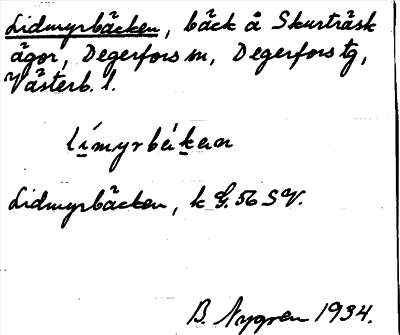 Lidmyrbäcken, bäck å Skurträsk
ägor, Degerfors sn, Degerfors tg,
Västerb. l.
límyrbákan
Lidmyrbäcken, k G. 56 SV.
B. Nygren 1934.